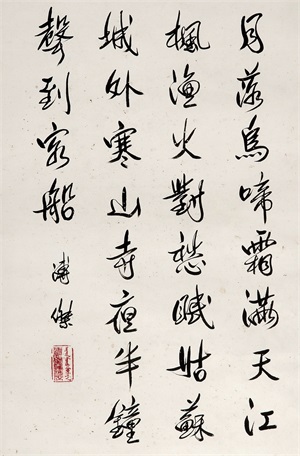 月落烏啼霜滿天江
楓漁火對愁眠姑蘇
城外寒山寺夜半鐘
聲到客船
溥傑